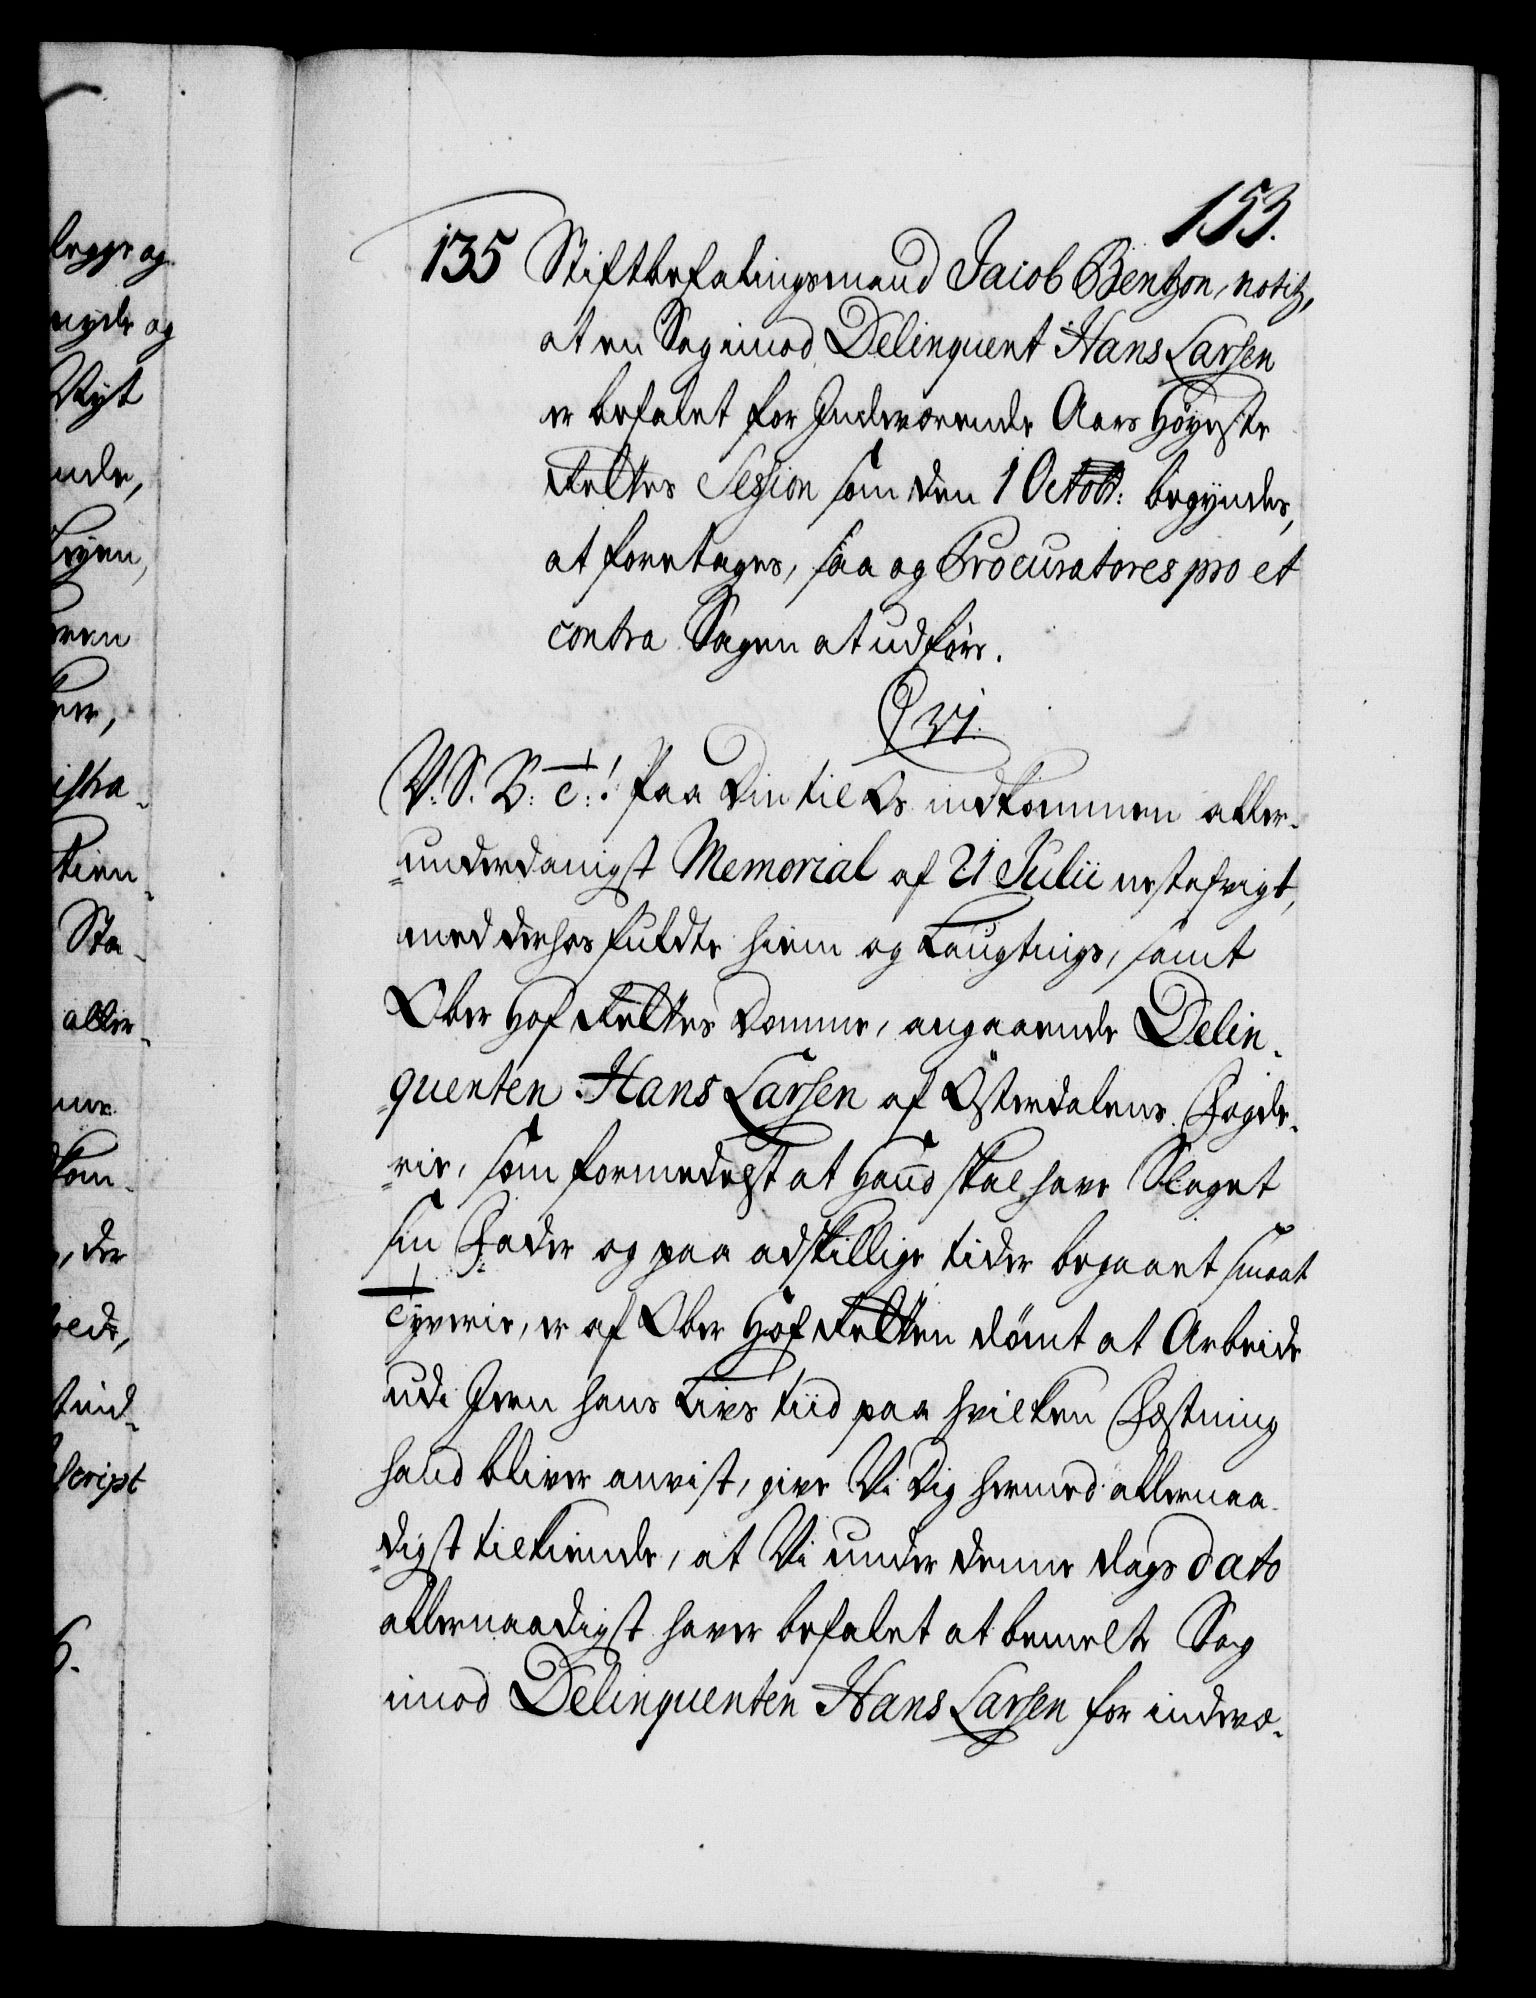 153.
135 Stiftbefalingsmand Jacob Bentzon, notif,
at en Sag imod Delinquent Hans Larsen
er befalet for Indeværende Aars Høyeste
Rettes Session som den 1 Octobr: begyndes,
at foretages, saa og Procuratores pro et
contra Sagen at udføre.
C VI.
V. S. B: T: ! Paa Din til Os indkommen aller-
underdanigst Memorial af 21 Julii nestafvigt,
med derhos fuldte hiem og Laugtings, samt
Ober Hof Rettes Domme, angaaende Delin-
quenten Hans Larsen af Østerdalens Fogde-
rie, som formedelst at Hand skal have Slaget
sin Fader og paa adskillige tider begaaet smaat
Tyverie, er af Ober Hof Retten dømt at Arbeide
udi Jern hans Livs tiid paa hvilken Fæstning
hand bliver anvist, give Vi Dig hermed allernaa-
digst tilkiende, at Vi under denne dags dato
allernaadigst haver befalet at bemelte Sag
imod Delinquenten Hans Larsen for indevæ-
legge og
nyde og
Nyt
nde,
eren
istra-
tien-
Sta-
aller-
kom-
, der
ind-
script
6.